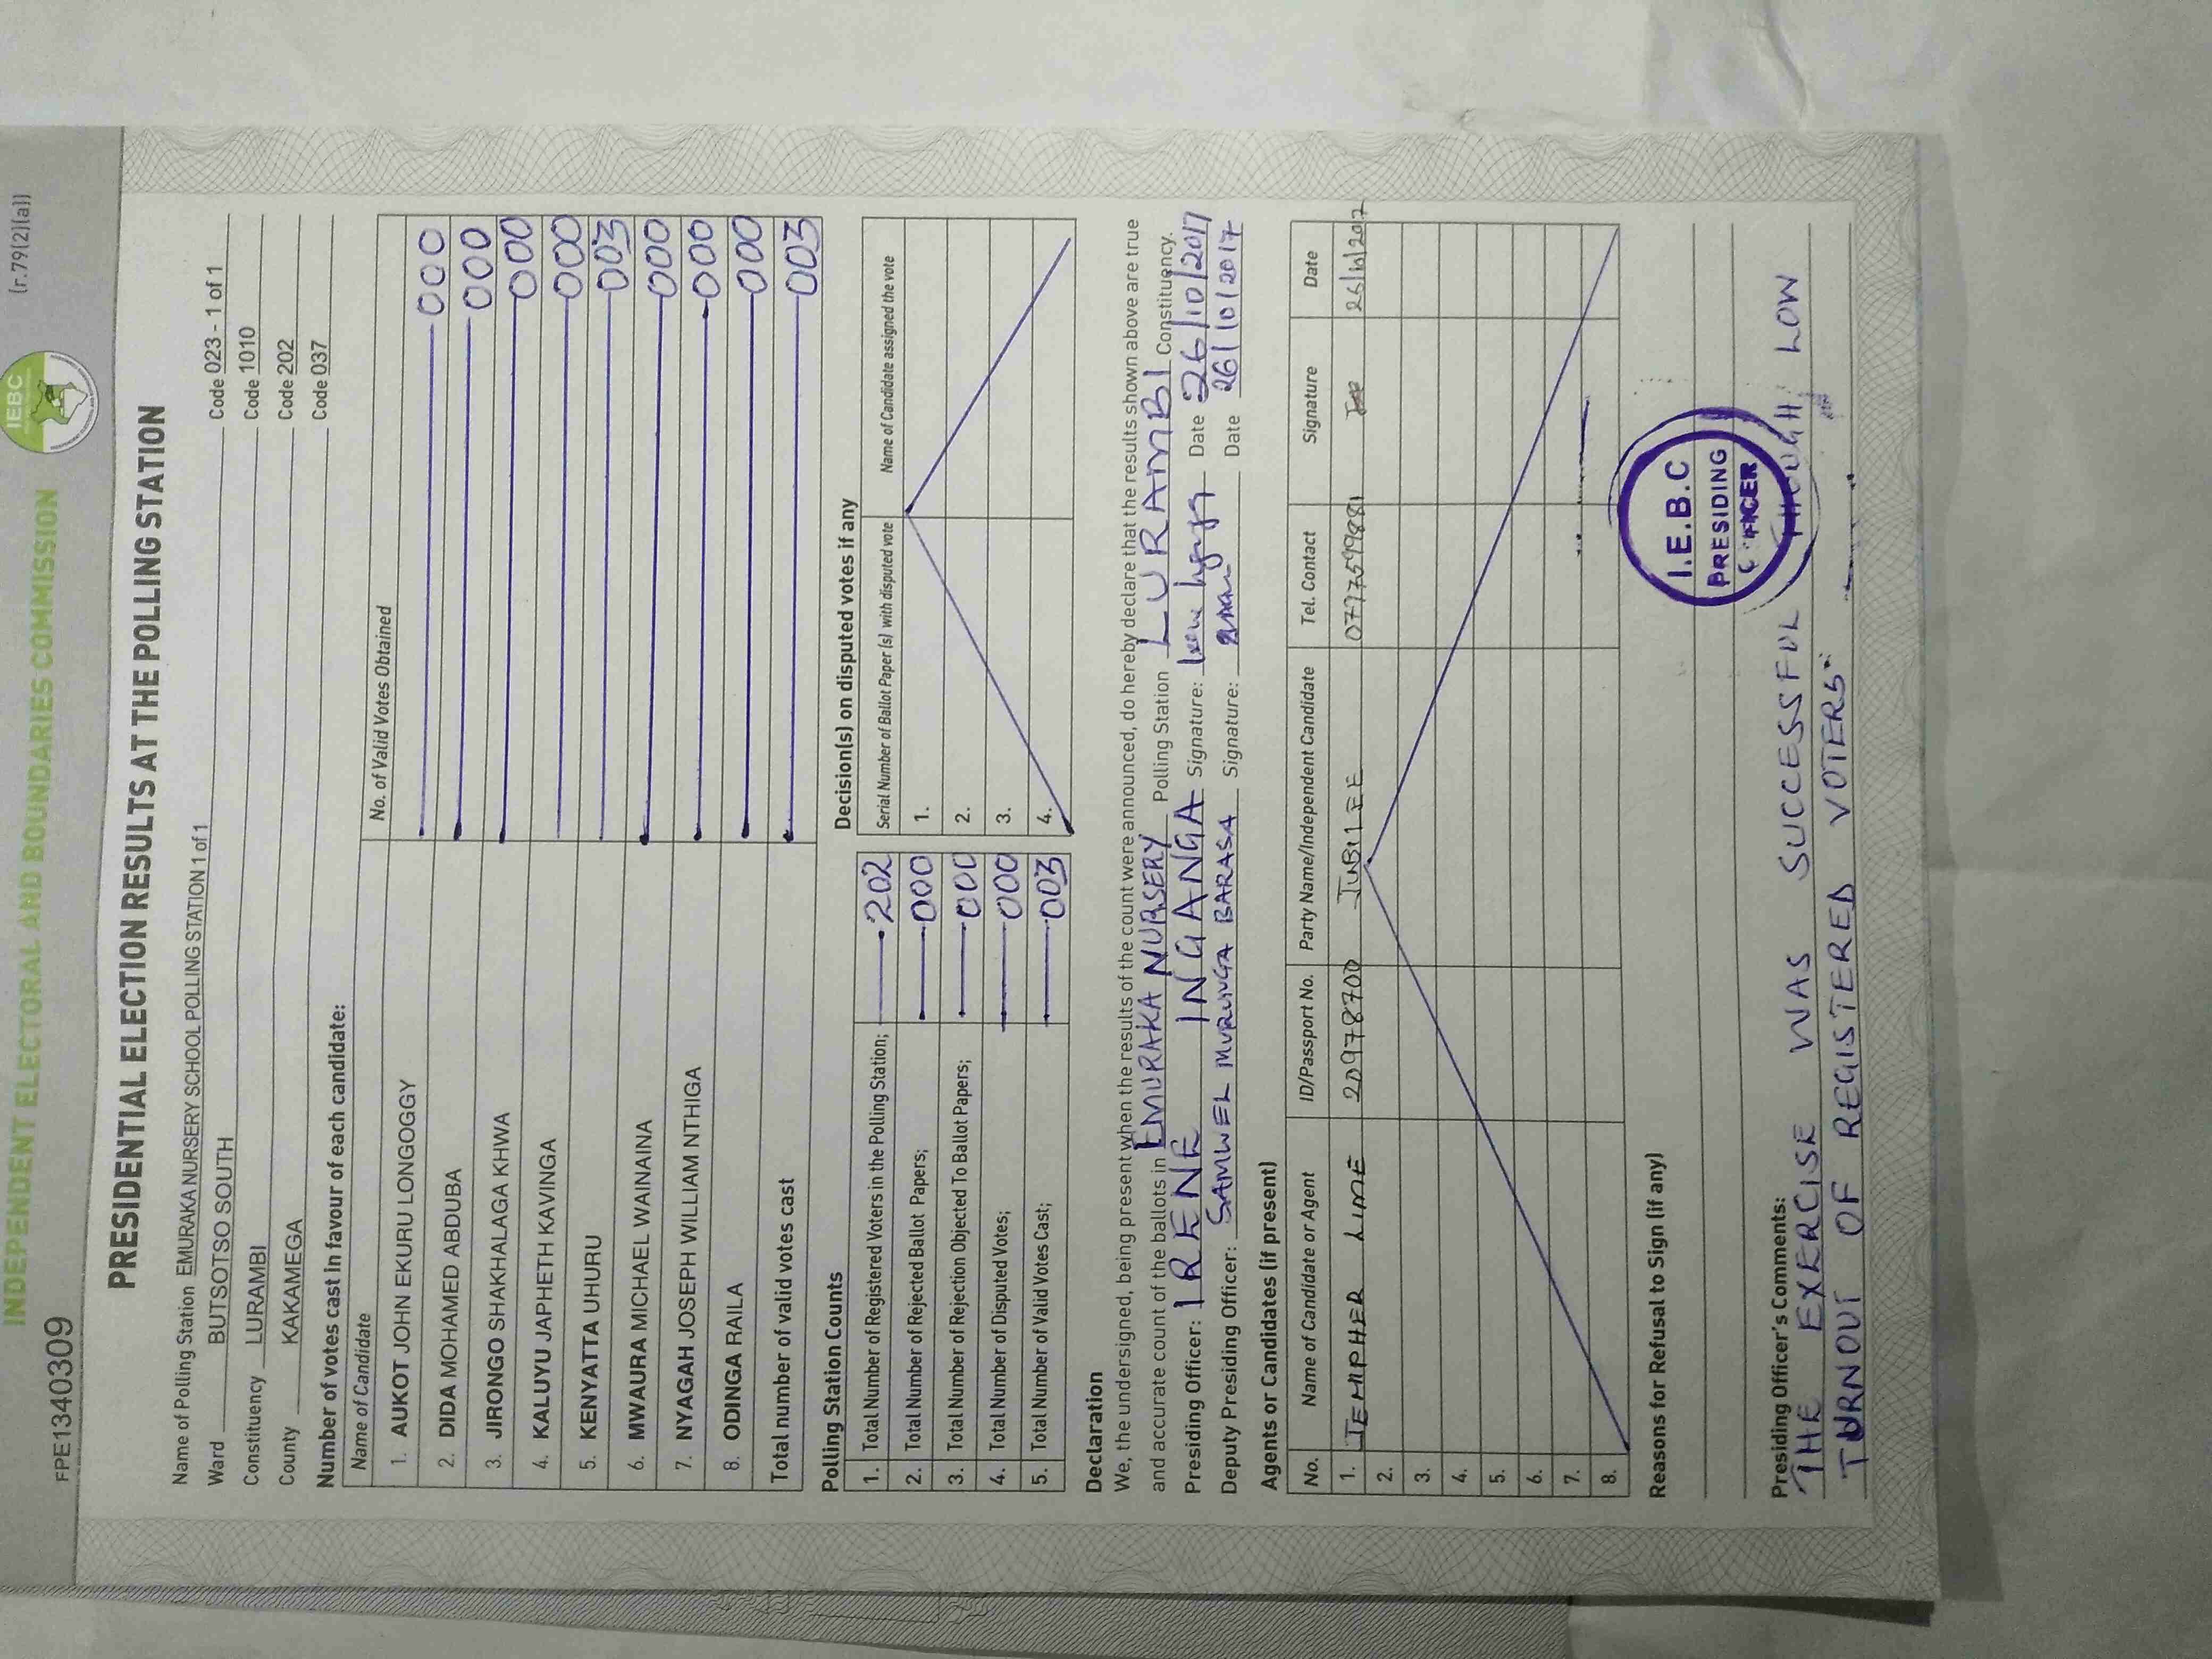 INDEPENDENT ELECTORAL AND BOUNDARIES COMMISSION
IEBC
(r.79(2)(a))
FPE1340309
PRESIDENTIAL ELECTION RESULTS AT THE POLLING STATION
Name of Polling Station EMURAKA NURSERY SCHOOL POLLING STATION 1 of 1 Code 023 - 1 of 1
Ward BUTSOTSO SOUTH Code 1010
Constituency LURAMBI Code 202
County KAKAMEGA Code 037
Number of votes cast in favour of each candidate:
Name of Candidate No. of Valid Votes Obtained
1. AUKOT JOHN EKURU LONGOGGY 000
2. DIDA MOHAMED ABDUBA 000
3. JIRONGO SHAKHALAGA KHWA 000
4. KALUYU JAPHETH KAVINGA 000
5. KENYATTA UHURU 003
6. MWAURA MICHAEL WAINAINA 000
7. NYAGAH JOSEPH WILLIAM NTHIGA 000
8. ODINGA RAILA 000
Total number of valid votes cast 003
Polling Station Counts
1. Total Number of Registered Voters in the Polling Station; 202
2. Total Number of Rejected Ballot Papers; 000
3. Total Number of Rejection Objected To Ballot Papers; 000
4. Total Number of Disputed Votes; 000
5. Total Number of Valid Votes Cast; 003
Decision(s) on disputed votes if any
Serial Number of Ballot Paper (s) with disputed vote Name of Candidate assigned the vote
1.
2.
3.
4.
Declaration
We, the undersigned, being present when the results of the count were announced, do hereby declare that the results shown above are true
and accurate count of the ballots in EMURAKA NURSERY Polling Station LURAMBI Constituency.
Presiding Officer: IRENE INGANGA Signature: Date 26/10/2017
Deputy Presiding Officer: SAMWEL MURUNGA BARASA Signature: Date 26/10/2017
Agents or Candidates (if present)
No. Name of Candidate or Agent ID/Passport No. Party Name/Independent Candidate Tel. Contact Signature Date
1. JEMIPHER LIME 20978700 JUBILEE 26/10/2017
2.
3.
4.
5.
6.
7.
8.
Reasons for Refusal to Sign (if any)
I.E.B.C
PRESIDING
Presiding Officer's Comments:
THE EXERCISE WAS SUCCESSFUL THOUGH LOW
TURNOUT OF REGISTERED VOTERS